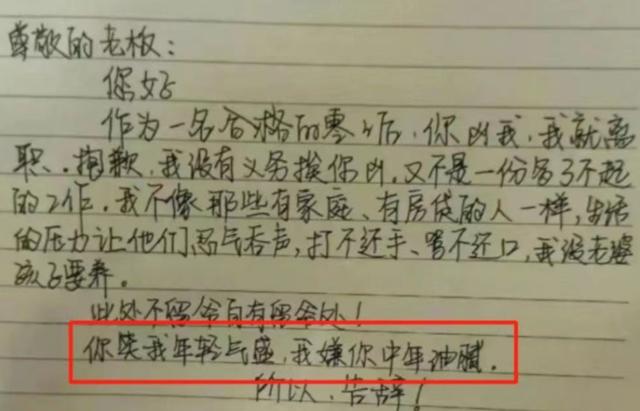 尊敬的老板:
你好
作为一名合格的零0后,你凶我,我就离
职..抱歉,我没有义务挨你凶,又不是一份多了不起
的工作。我不像那些有家庭、有房贷的人一样,生活
的压力让他们忍气吞声,打不还手、骂不还口,我没老婆
孩子要养。
此处不留爷自有留爷处!
你笑我年轻气盛,我嫌你中年油腻。
所以,告辞!